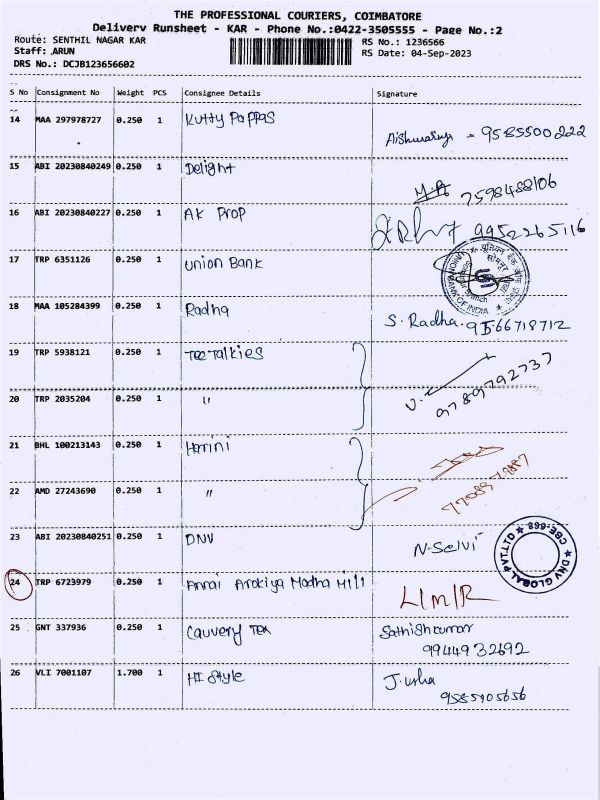 THE PROFESSIONAL COURIERS, COIMBATORE
Delivery Runsheet - KAR - Phone No.:0422-3505555 - Page No.:2
Route: SENTHIL NAGAR KAR
RS No.: 1236566
Staff: .ARUN
RS Date: 04-Sep-2023
DRS No.: DCJB123656602
S No Consignment No Weight PCS Consignee Details Signature
14 MAA 297978727 0.250 1 Kutty Pappas
Aishwarya - 9585500222
15 ABI 20230840249 0.250 1 Delight
7598488106
16 ABI 20230840227 0.250 1 AK Prop
9952265116
17 TRP 6351126 0.250 1 Union Bank
UNION BANK OF INDIA
18 MAA 105284399 0.250 1 Radha
S. Radha. 9566718712
19 TRP 5938121 0.250 1 Tee Talkies
9789792737
20 TRP 2035204 0.250 1 "
21 BHL 100213143 0.250 1 Harini
22 AMD 27243690 0.250 1 "
23 ABI 20230840251 0.250 1 DNV
N. Selvi
DNV GLOBAL PVT LTD ★ CBE-668 ★
24 TRP 6723979 0.250 1 Annai Arokiya Madha Mill
L/M/R
25 GNT 337936 0.250 1 Cauvery Tex
Sathishkumar
9944932692
26 VLI 7001107 1.700 1 HI Style
J. usha
9585905656